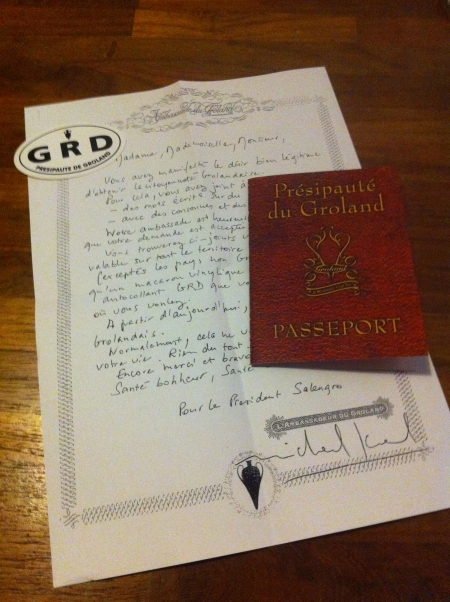 Ambassade du Groland
GRD
PRÉSIPAUTÉ DE GROLAND
Madame, Mademoiselle, Monsieur,
Vous avez manifesté le désir bien légitime
d'obtenir la citoyenneté Grolandaise.
Pour cela, vous avez joint à
- des mots écrits sur du
- avec des consonnes et des
Notre ambassade est heureuse
que votre demande est acceptée
Vous trouverez ci-joints
valable sur tout le territoire
(exceptés les pays non
qu'un macaron vinylique
autocollant GRD que vo
où vous voulez.
A partir d'aujourd'hui,
Grolandais.
Normalement, cela ne v
votre vie. Rien du tout
Encore merci et bravo
Santé bonheur, Santé
Pour le Président Salengro
L'AMBASSADEUR DU GROLAND
Présipauté
du Groland
Groland
PASSEPORT